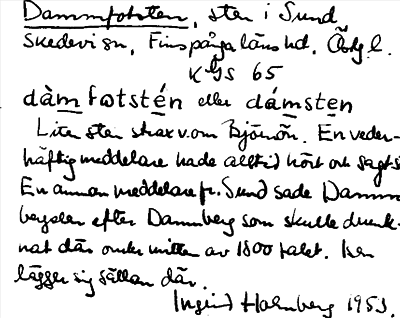 Dammfotsten, sten i Sund
Skedevi sn, Finspånga läns hd, Östg.l.
KGS 65
dàm̲fotstén eller dám̲sten
Liten sten strax v.om Björnön. En veder-
häftig meddelare hade alltid hört och sagt så
En annan meddelare fr. Sund sade Damm
bergsten efter Dammberg som skulle drunk-
nat där omkr mitten av 1800 talet. Isen
lägger sig sällan där.
Ingrid Holmberg 1953.